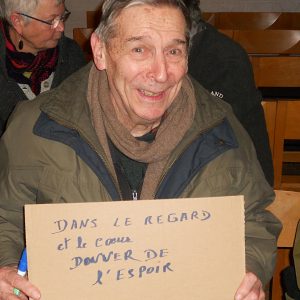 DANS LE REGARD
et le coeur
DONNER DE
l'ESPOIR
AND